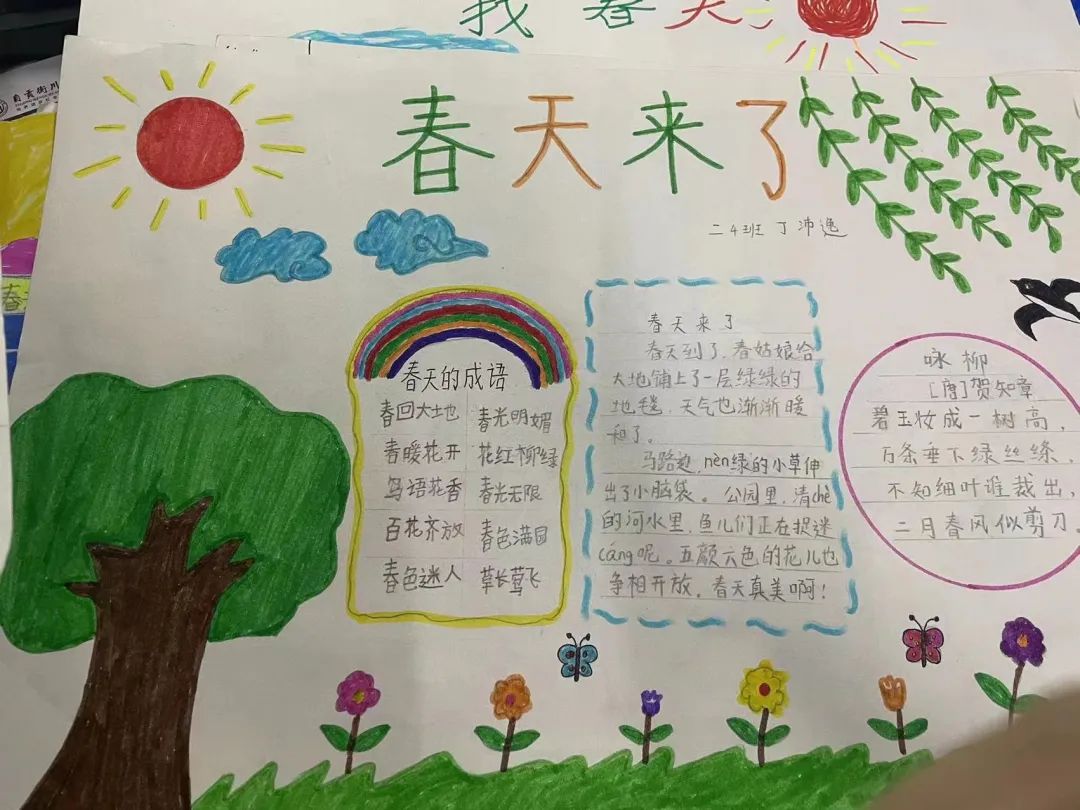 找春天
春天来了
二4班 丁沛逸
春天的成语
春回大地 春光明媚
春暖花开 花红柳绿
鸟语花香 春光无限
百花齐放 春色满园
春色迷人 草长莺飞
春天来了
春天到了，春姑娘给
大地铺上了一层绿绿的
地毯，天气也渐渐暖
和了。
马路边，nèn绿的小草伸
出了小脑袋。公园里，清chè
的河水里，鱼儿们正在捉迷
cáng呢。五颜六色的花儿也
争相开放，春天真美啊！
咏柳
[唐]贺知章
碧玉妆成一树高，
万条垂下绿丝绦，
不知细叶谁裁出，
二月春风似剪刀。